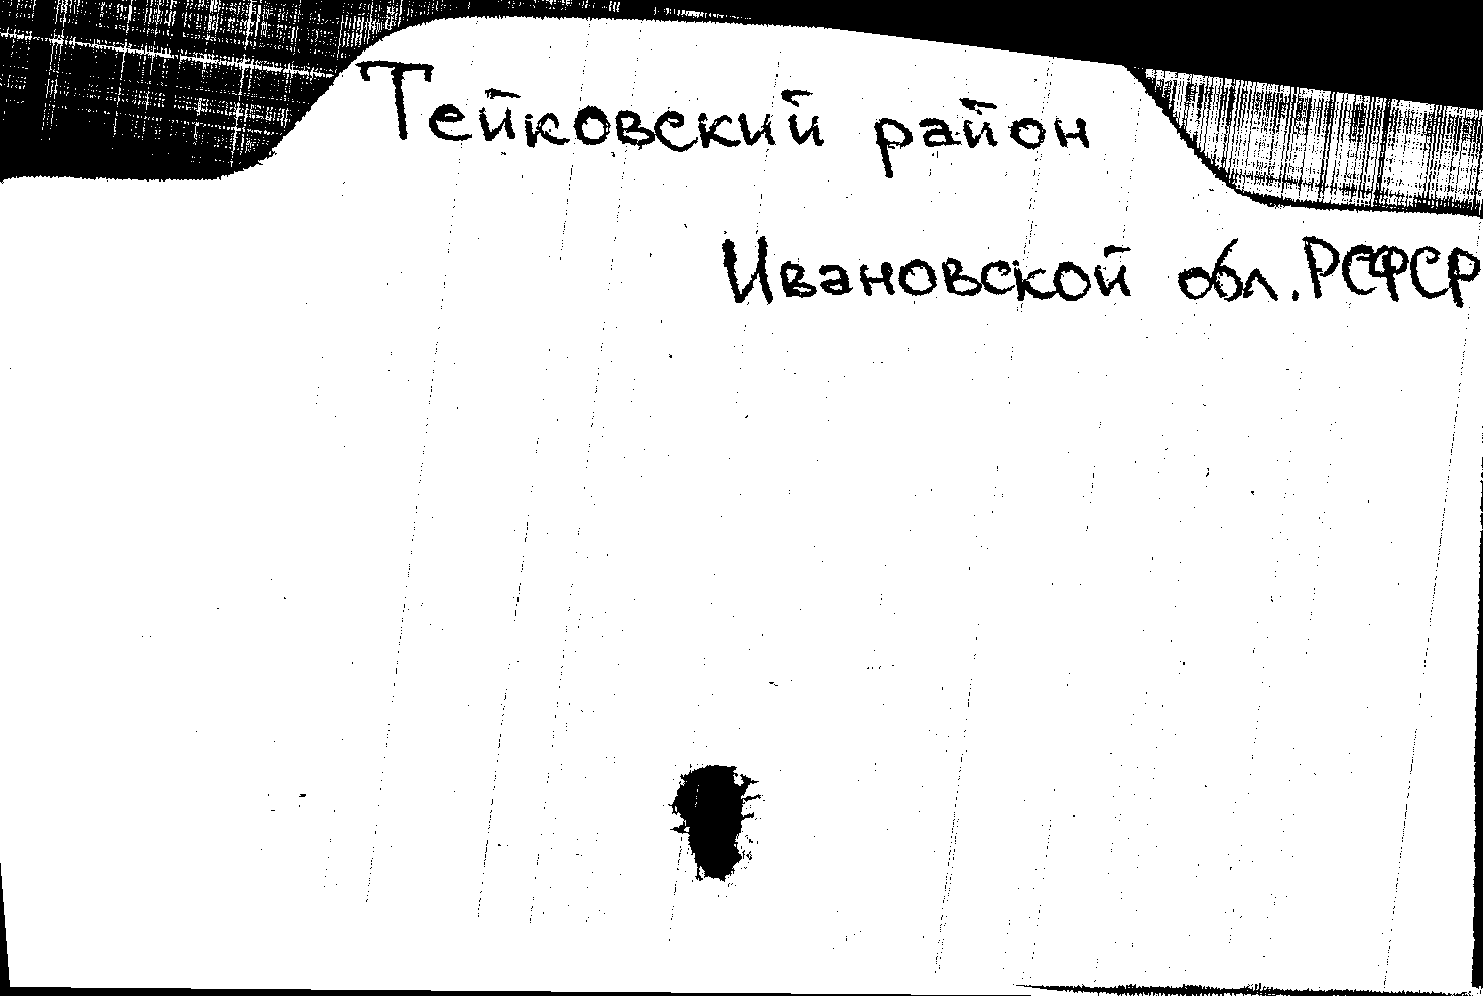 Тейковский район
Ивановской обл. РСФСР